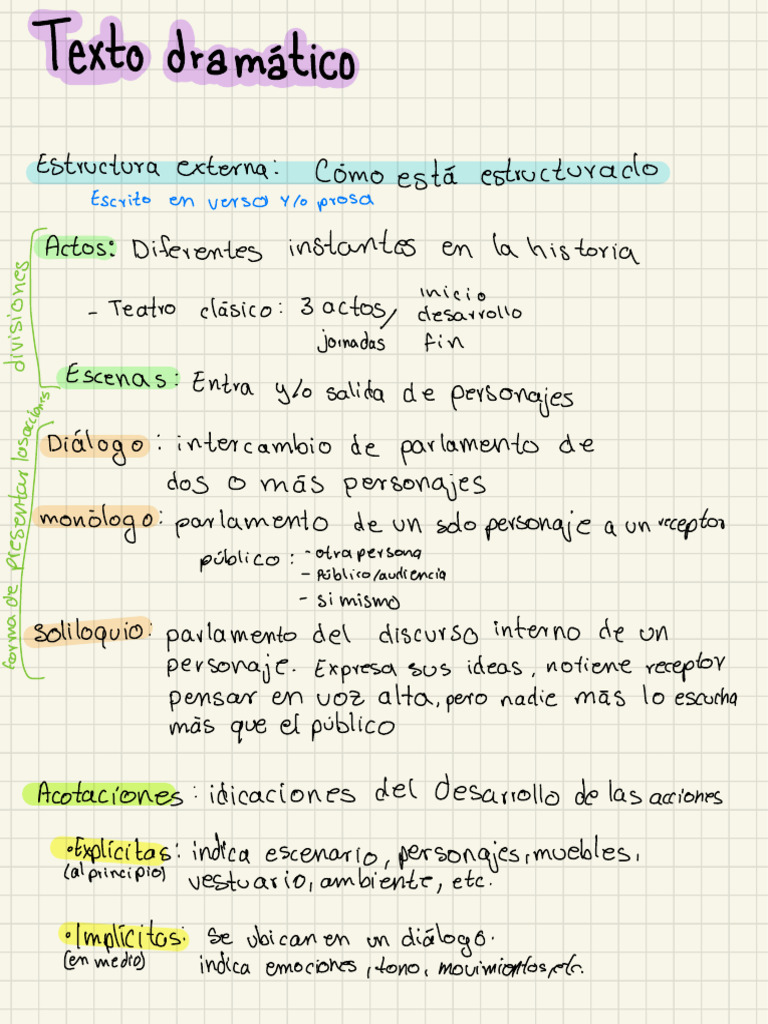 Texto dramático
Estructura externa: Cómo está estructurado
Escrito en verso y/o prosa
divisiones
Actos: Diferentes instantes en la historia
- Teatro clásico: 3 actos/ inicio
desarrollo
jornadas fin
Escenas: Entra y/o salida de personajes
forma de presentar las acciones
Diálogo: intercambio de parlamento de
dos o más personajes
monólogo: parlamento de un solo personaje a un receptor
público: - otra persona
- Público/audiencia
- si mismo
soliloquio: parlamento del discurso interno de un
personaje. Expresa sus ideas, no tiene receptor
pensar en voz alta, pero nadie más lo escucha
más que el público
Acotaciones: idicaciones del desarrollo de las acciones
•Explícitas: indica escenario, personajes, muebles,
(al principio) vestuario, ambiente, etc.
•Implícitas: se ubican en un diálogo.
(en medio) indica emociones, tono, movimientos, etc.